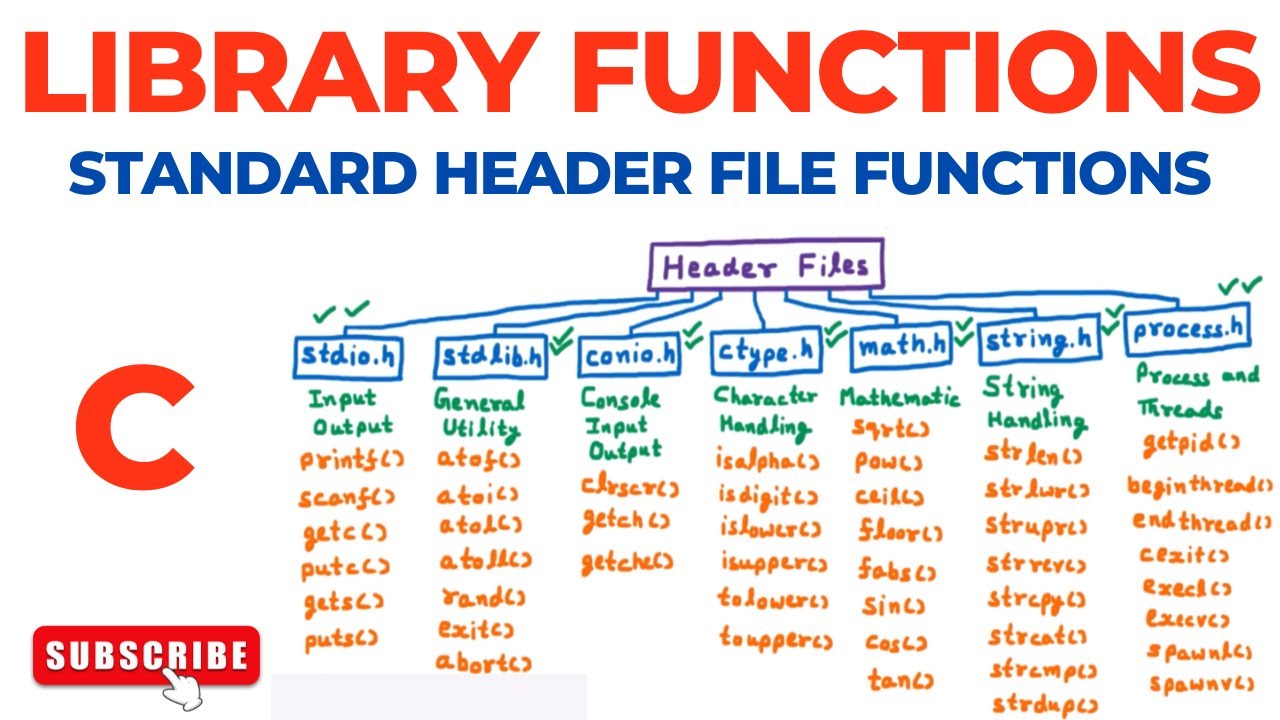 LIBRARY FUNCTIONS
STANDARD HEADER FILE FUNCTIONS
Header Files
stdio.h
Input
Output
printf()
scanf()
getc()
putc()
gets()
puts()
stdlib.h
General
Utility
atof()
atoi()
atol()
atoll()
rand()
exit()
abort()
conio.h
Console
Input
Output
clrscr()
getch()
getche()
ctype.h
Character
Handling
isalpha()
isdigit()
islower()
isupper()
tolower()
toupper()
math.h
Mathematic
sqrt()
pow()
ceil()
floor()
fabs()
sin()
cos()
tan()
string.h
String
Handling
strlen()
strlwr()
strupr()
strrev()
strcpy()
strcat()
strcmp()
strdup()
process.h
Process and
Threads
getpid()
beginthread()
endthread()
cexit()
execl()
execv()
spawnl()
spawnv()
C
SUBSCRIBE